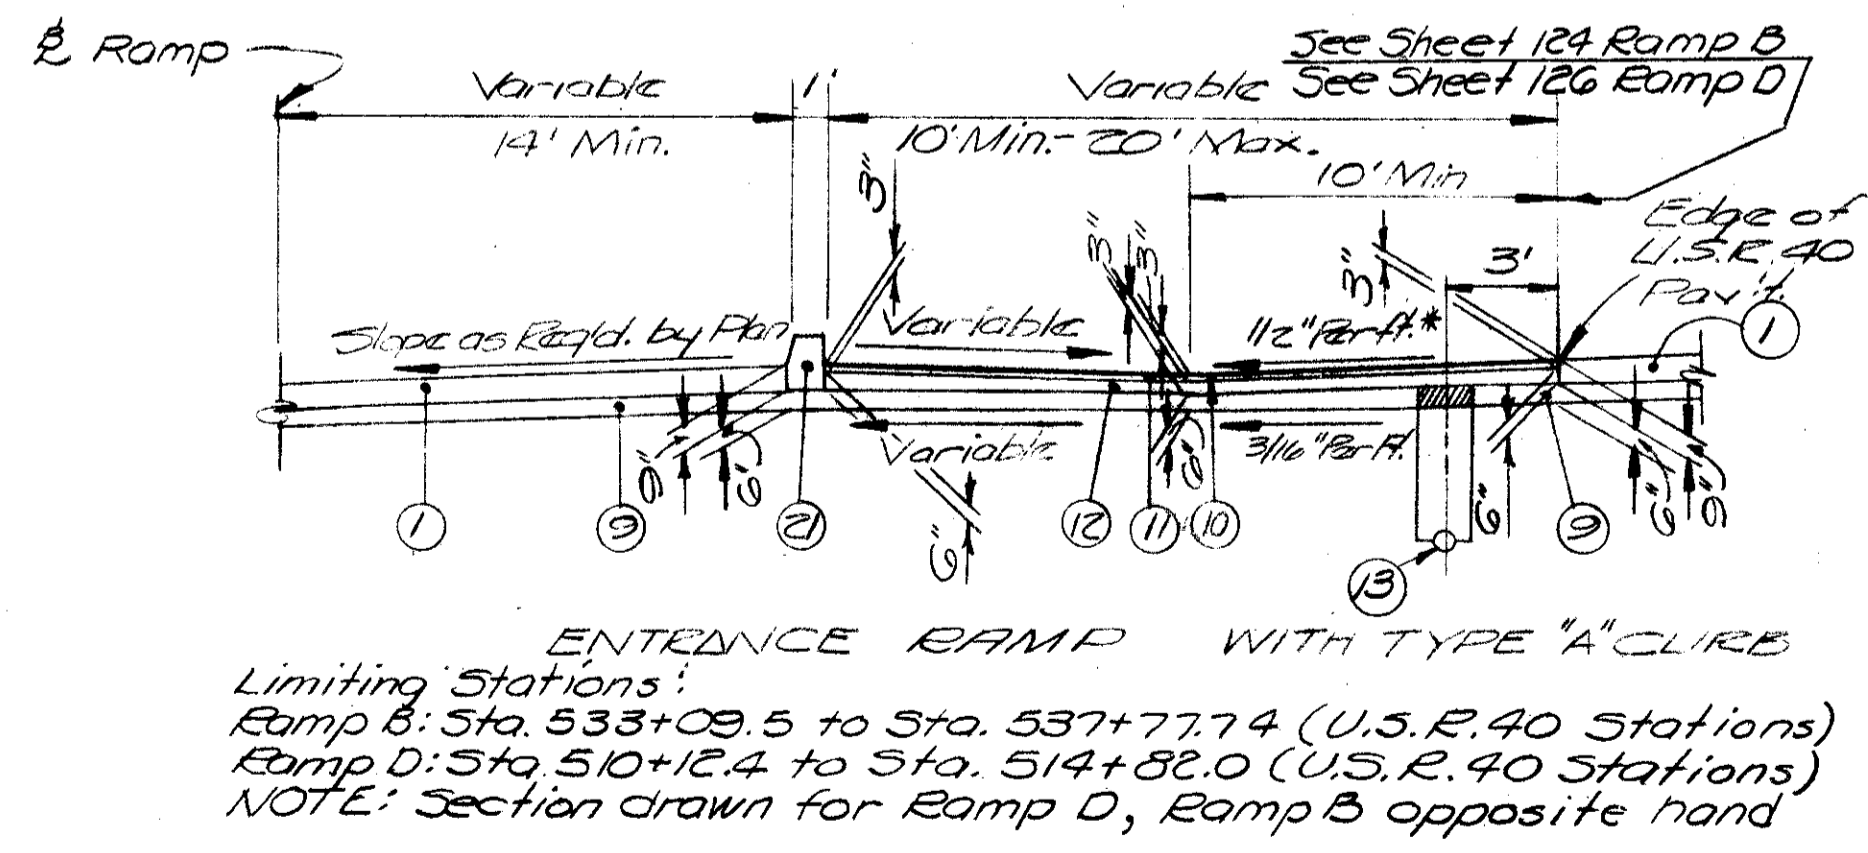 ℄ Ramp
See Sheet 124 Ramp B
See Sheet 126 Ramp D
Variable
1'
Variable
14' Min.
10' Min.- 20' Max.
10' Min
3"
3"
3"
3"
3'
Edge of
U.S.R. 40
Pav't.
Slope as Req'd. by Plan
Variable
1/2" Per ft. *
1
Variable
3/16" Per Ft.
9"
6'
6"
6"
6"
6"
9"
1
9
21
12
11
10
9
13
ENTRANCE RAMP WITH TYPE "A" CURB
Limiting Stations:
Ramp B: Sta. 533+09.5 to Sta. 537+77.74 (U.S.R. 40 Stations)
Ramp D: Sta. 510+12.4 to Sta. 514+82.0 (U.S.R. 40 Stations)
NOTE: Section drawn for Ramp D, Ramp B opposite hand